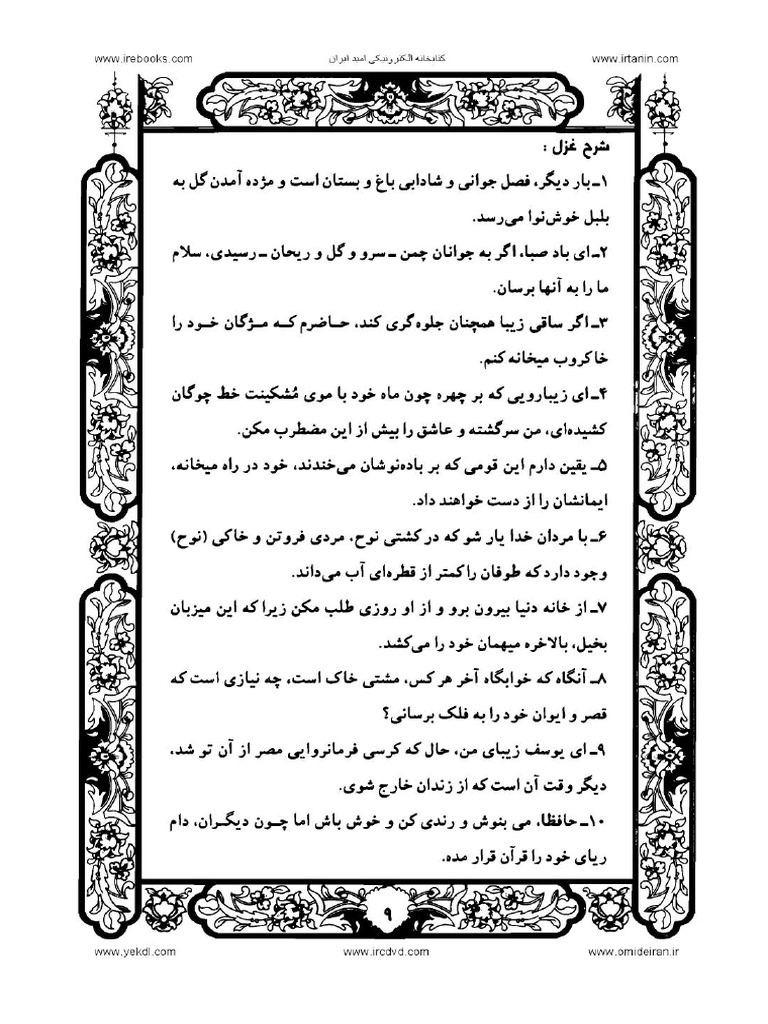 www.irebooks.com کتابخانه الکترونیکی امید ایران www.irtanin.com
شرح غزل :
۱ـ بار دیگر، فصل جوانی و شادابی باغ و بستان است و مژده آمدن گل به
بلبل خوش‌نوا می‌رسد.
۲ـ ای باد صبا، اگر به جوانان چمن ـ سرو و گل و ریحان ـ رسیدی، سلام
ما را به آنها برسان.
۳ـ اگر ساقی زیبا همچنان جلوه‌گری کند، حاضرم که مژگان خود را
خاکروب میخانه کنم.
۴ـ ای زیبارویی که بر چهره چون ماه خود با موی مُشکینت خط چوگان
کشیده‌ای، من سرگشته و عاشق را بیش از این مضطرب مکن.
۵ـ یقین دارم این قومی که بر باده‌نوشان می‌خندند، خود در راه میخانه،
ایمانشان را از دست خواهند داد.
۶ـ با مردان خدا یار شو که در کشتی نوح، مردی فروتن و خاکی (نوح)
وجود دارد که طوفان را کمتر از قطره‌ای آب می‌داند.
۷ـ از خانه دنیا بیرون برو و از او روزی طلب مکن زیرا که این میزبان
بخیل، بالاخره میهمان خود را می‌کشد.
۸ـ آنگاه که خوابگاه آخر هر کس، مشتی خاک است، چه نیازی است که
قصر و ایوان خود را به فلک برسانی؟
۹ـ ای یوسف زیبای من، حال که کرسی فرمانروایی مصر از آن تو شد،
دیگر وقت آن است که از زندان خارج شوی.
۱۰ـ حافظا، می بنوش و رندی کن و خوش باش اما چون دیگران، دام
ریای خود را قرآن قرار مده.
۹
www.yekdl.com www.ircdvd.com www.omideiran.ir